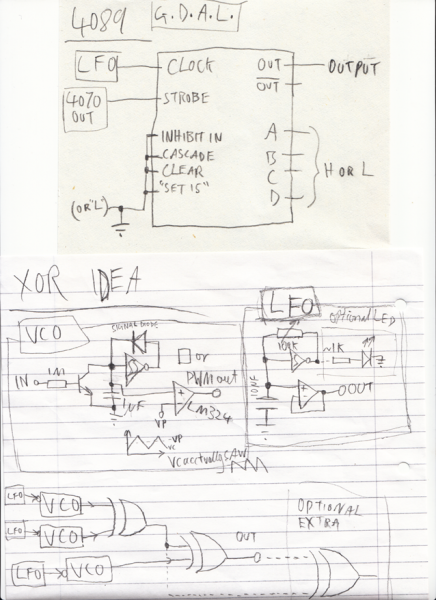 4089 G.D.A.L.
LFO CLOCK OUT OUTPUT
OUT
4070
OUT
STROBE
INHIBIT IN A
CASCADE B
CLEAR C
"SET 15" D
H OR L
(OR "L")
XOR IDEA
LFO
VCO
SIGNAL DIODE
OPTIONAL LED
100K
~1K
or
PWM out
IN 1M
10NF
OUT
1uF
LM324
VP
VP
VC
VC actually SAW
LFO VCO
LFO VCO
LFO VCO
OUT
OPTIONAL
EXTRA